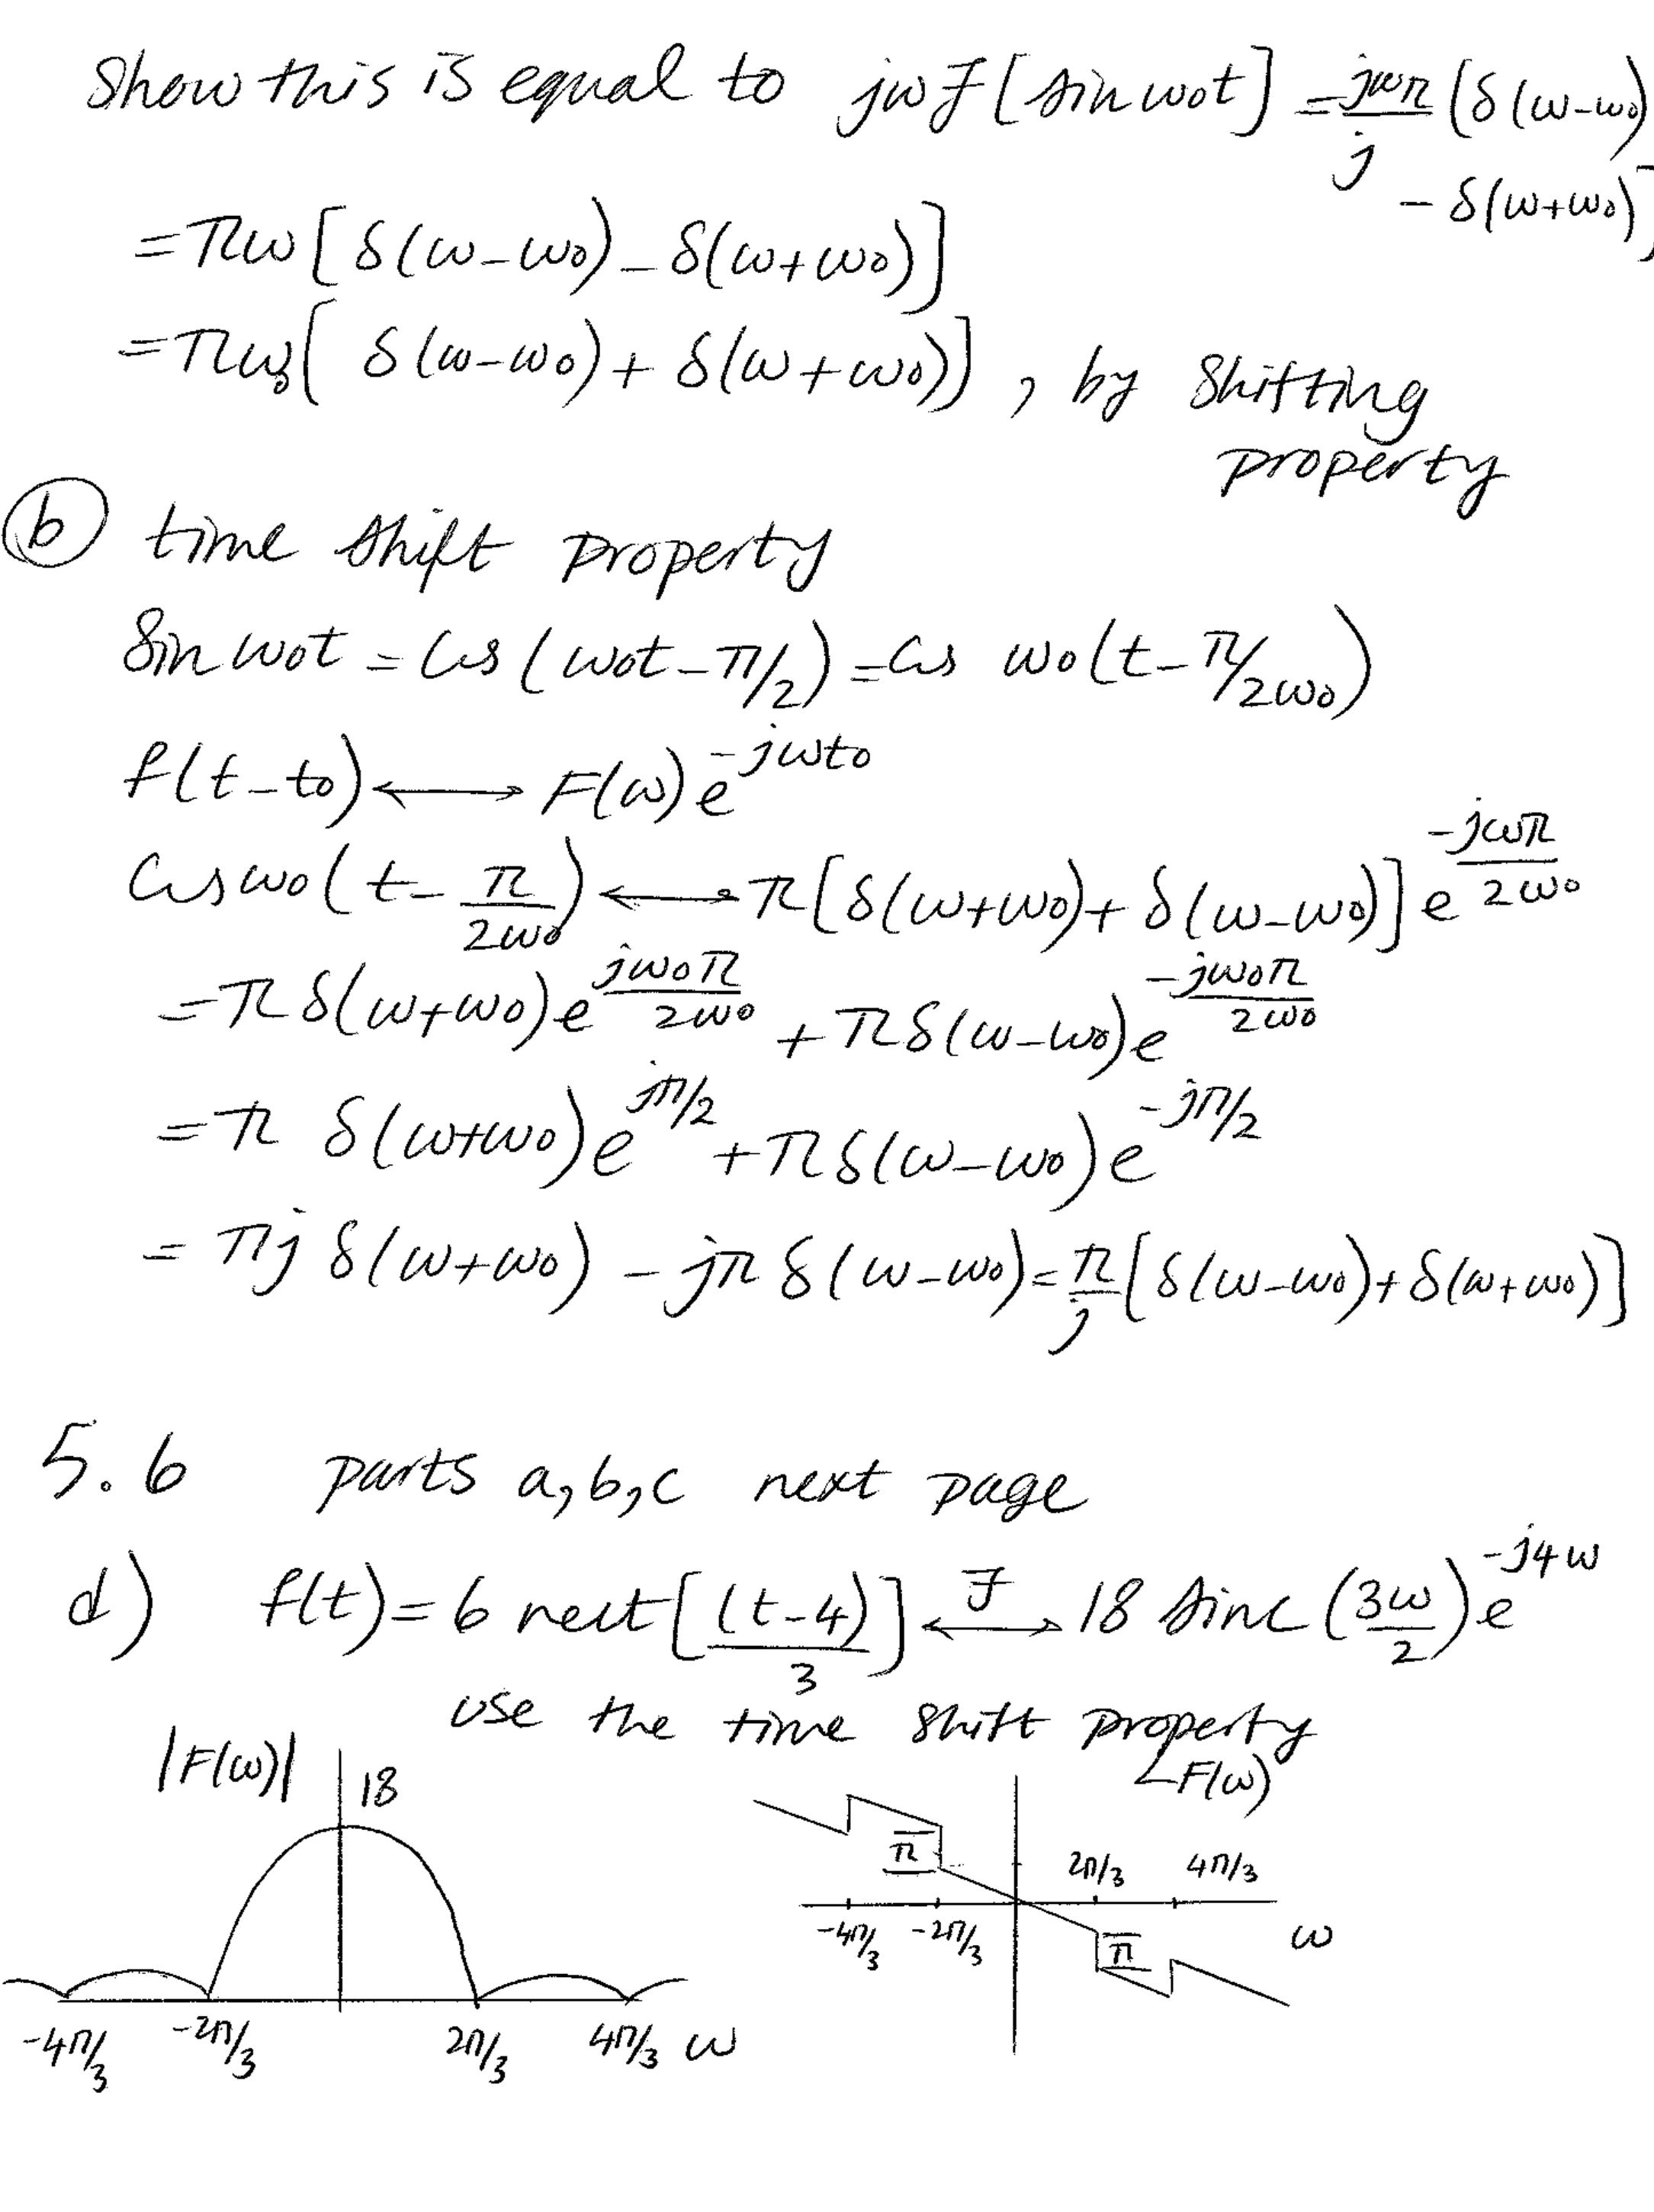 Show this is equal to jωℱ[sin ω0t] = jωπ/j (δ(ω-ω0)
- δ(ω+ω0)]
= πω[δ(ω-ω0) - δ(ω+ω0)]
= πω0[δ(ω-ω0) + δ(ω+ω0)], by shifting
property
ⓑ time shift property
Sin ω0t = Cos(ω0t - π/2) = Cos ω0(t - π/2ω0)
f(t-t0) ⟷ F(ω)e^-jωt0
Cos ω0(t - π/2ω0) ⟷ π[δ(ω+ω0) + δ(ω-ω0)]e^-jωπ/2ω0
= πδ(ω+ω0)e^jω0π/2ω0 + πδ(ω-ω0)e^-jω0π/2ω0
= π δ(ω+ω0)e^jπ/2 + πδ(ω-ω0)e^-jπ/2
= πj δ(ω+ω0) - jπ δ(ω-ω0) = π/j [δ(ω-ω0) + δ(ω+ω0)]
5.6 parts a,b,c next page
d) f(t) = 6 rect[(t-4)/3] ⟷ℱ 18 sinc(3ω/2)e^-j4ω
use the time shift property
|F(ω)| 18
∠F(ω)
π 2π/3 4π/3
-4π/3 -2π/3 π ω
-4π/3 -2π/3 2π/3 4π/3 ω